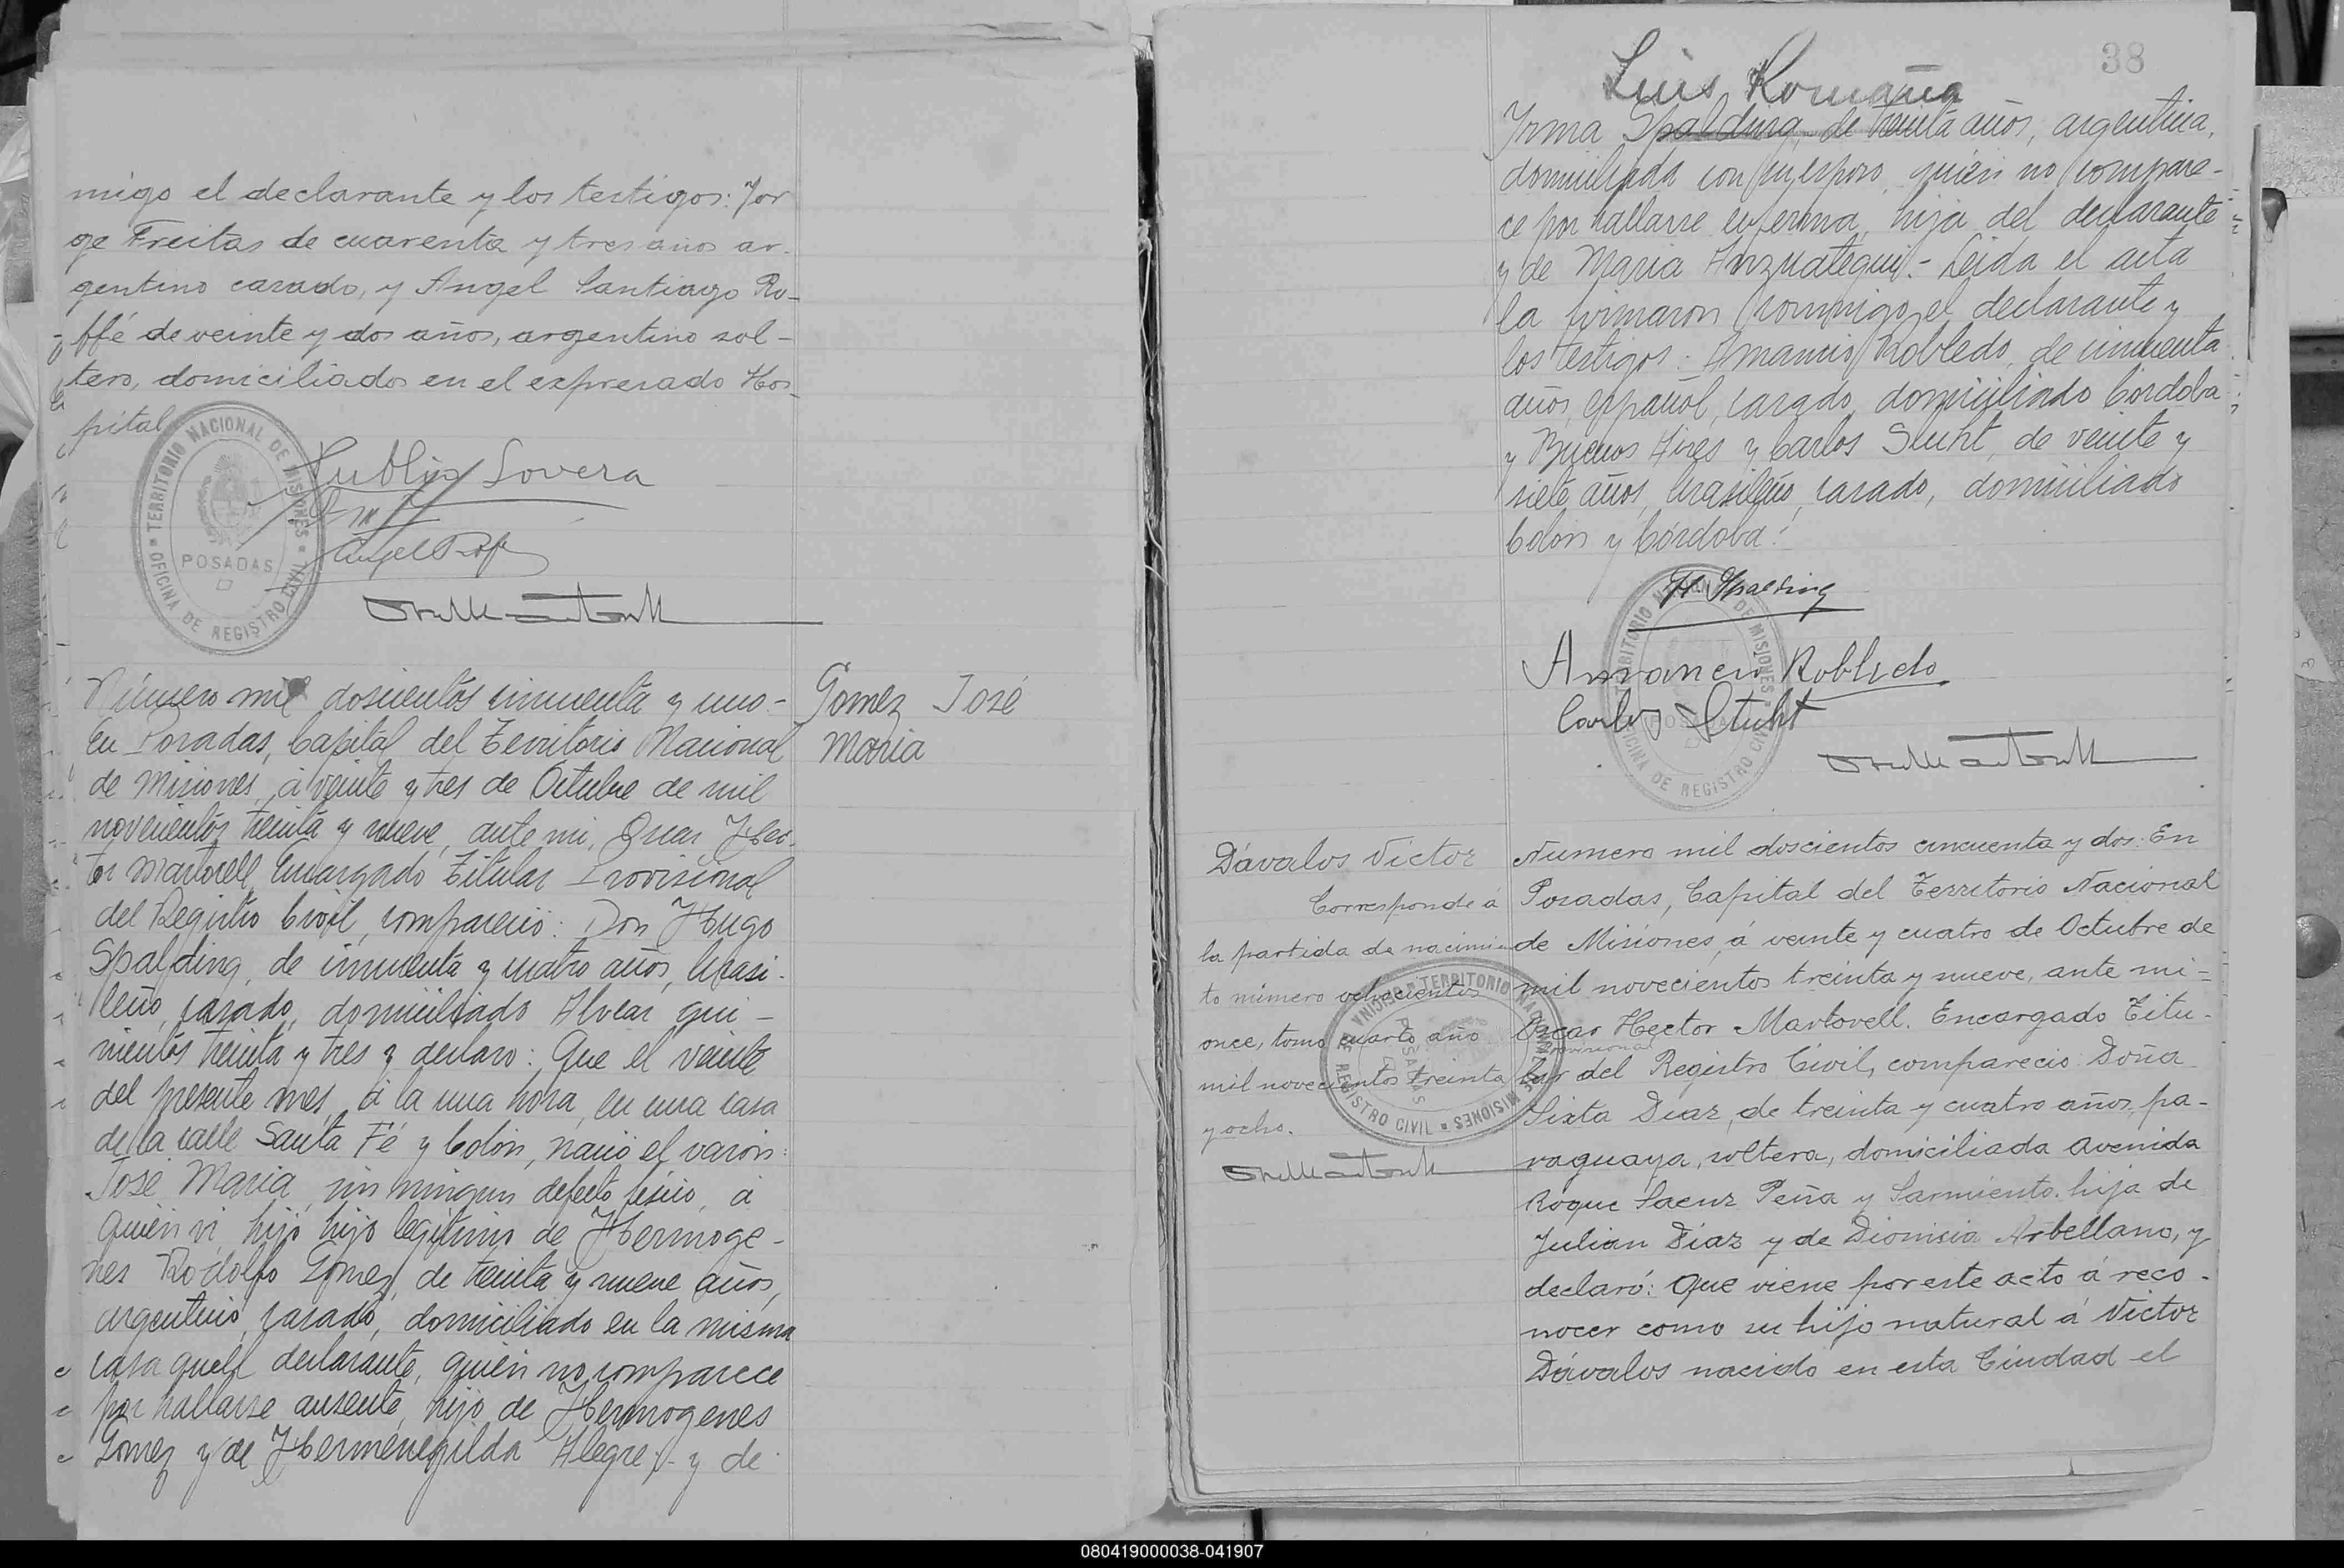 migo el declarante y los testigos: Jor
ge Freitas de cuarenta y tres años ar-
gentino casado, y Angel Santiago Ro-
ffé de veinte y dos años, argentino sol-
tero, domiciliados en el expresado Hos-
pital
TERRITORIO NACIONAL DE MISIONES
POSADAS
OFICINA DE REGISTRO CIVIL
Lovera
Angel Rof
Número mil doscientos cincuenta y uno-
En Posadas, Capital del Territorio Nacional
de Misiones, á veinte y tres de Octubre de mil
novecientos treinta y nueve, ante mi, Oscar Hec-
tor Martorell, Encargado Titular Provisional
del Registro Civil, compareció: Don Hugo
Spalding, de cincuenta y cuatro años, brasi-
leño, casado, domiciliado Alvear qui-
nientos treinta y tres y declaro: Que el veinte
del presente mes, á la una hora, en una casa
de la calle Santa Fé y Colón, nació el varón:
José Maria, sin ningun defecto fisico, á
quien vi, hijo hijo legitimo de Hermoge-
nes Rodolfo Gomez, de treinta y nueve años,
argentino, casado, domiciliado en la misma
casa que el declarante, quien no comparece
por hallarse ausente, hijo de Hermogenes
Gomez y de Hermenegilda Alegre; y de
Gomez José
Maria
38
Luis Romaña
Yrma Spalding, de treinta años, argentina,
domiciliada con su esposo, quien no compare-
ce por hallarse enferma, hija del declarante
y de Maria Anzuategui.- Leida el acta
la firmaron conmigo, el declarante y
los testigos: Amancio Robledo, de cincuenta
años, español, casado, domiciliado Córdoba
y Buenos Aires y Carlos Stuht, de veinte y
siete años, brasileño, casado, domiciliado
Colón y Córdoba.
H Spalding
Amancio Robledo
Carlos Stuht
TERRITORIO NACIONAL DE MISIONES
POSADAS
OFICINA DE REGISTRO CIVIL
Dávalos Victor
Corresponde á
la partida de nacimien
to número ochocientos
once, tomo cuarto año
mil novecientos treinta
y ocho.
TERRITORIO NACIONAL DE MISIONES
POSADAS
OFICINA DE REGISTRO CIVIL
Numero mil doscientos cincuenta y dos: En
Posadas, Capital del Territorio Nacional
de Misiones, á veinte y cuatro de Octubre de
mil novecientos treinta y nueve, ante mi-
Oscar Hector Martorell. Encargado Titu-
provisional
lar del Registro Civil, compareció: Doña
Sixta Diaz, de treinta y cuatro años, pa-
raguaya, soltera, domiciliada Avenida
Roque Saenz Peña y Sarmiento. hija de
Julian Diaz y de Dionisia Arbellano, y
declaró: Que viene por este acto á reco-
nocer como su hijo natural á Victor
Dávalos nacido en esta Ciudad el
080419000038-041907